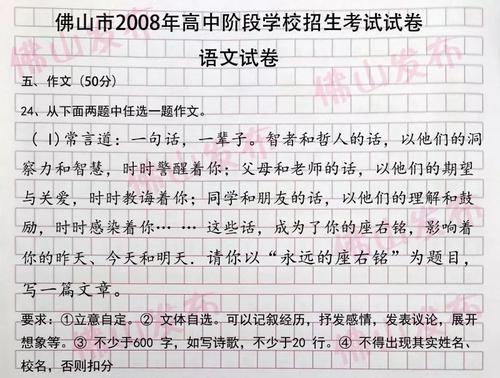 佛山市2008年高中阶段学校招生考试试卷
语文试卷
五、作文（50分）
24、从下面两题中任选一题作文。
（1)常言道：一句话，一辈子。智者和哲人的话，以他们的洞
察力和智慧，时时警醒着你；父母和老师的话，以他们的期望
与关爱，时时教诲着你；同学和朋友的话，以他们的理解和鼓
励，时时感染着你… … 这些话，成为了你的座右铭，影响着
你的昨天、今天和明天．请你以“永远的座右铭”为题目，
写一篇文章。
要求：①立意自定。② 文体自选。可以记叙经历，抒发感情，发表议论，展开
想象等。③ 不少于600 字，如写诗歌，不少于20 行。④ 不得出现其实姓名、
校名，否则扣分
佛山发布
佛山发布
佛山发布
佛山发布
佛山发布